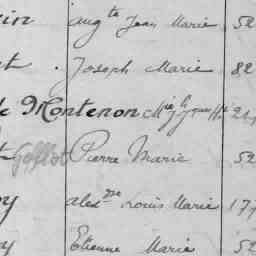 Aug.te Jean Marie 52
t Joseph Marie 82
de Montenon Mie
Gofflot Pierre Marie 52
oy Alex.dre Louis Marie 177
y Etienne Marie 52